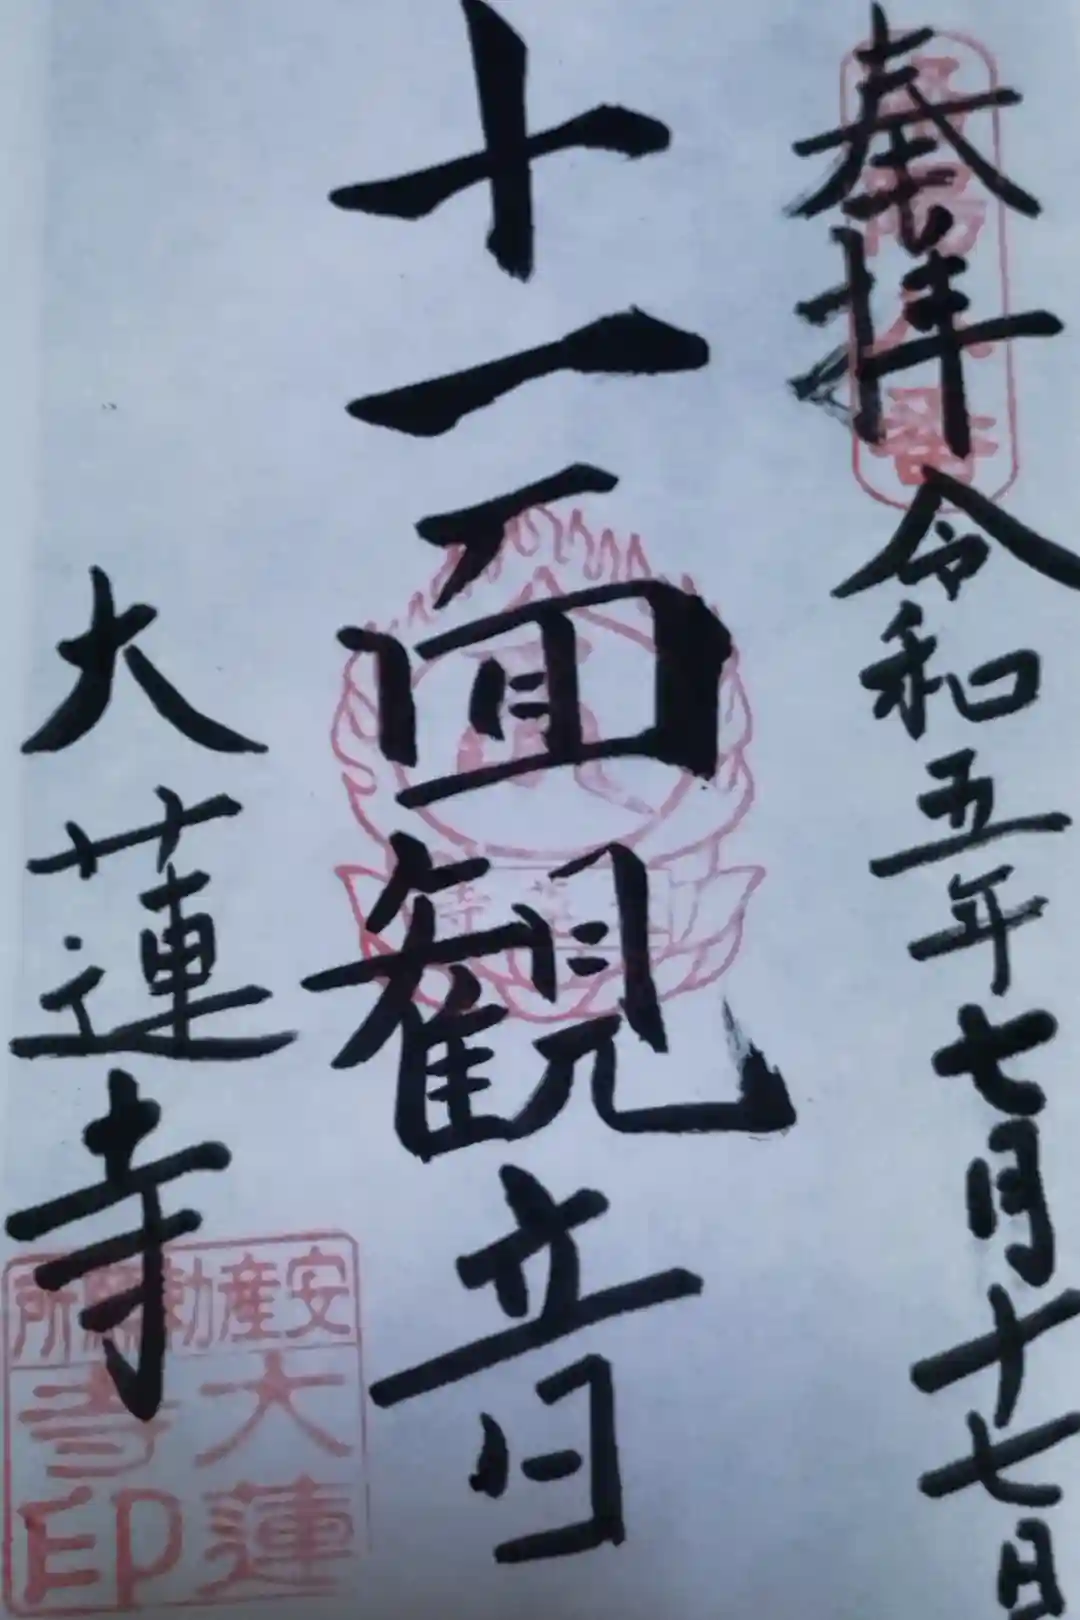 奉拝
令和五年七月十七日
十一面観音
大蓮寺
安産勅願所
大蓮
寺印